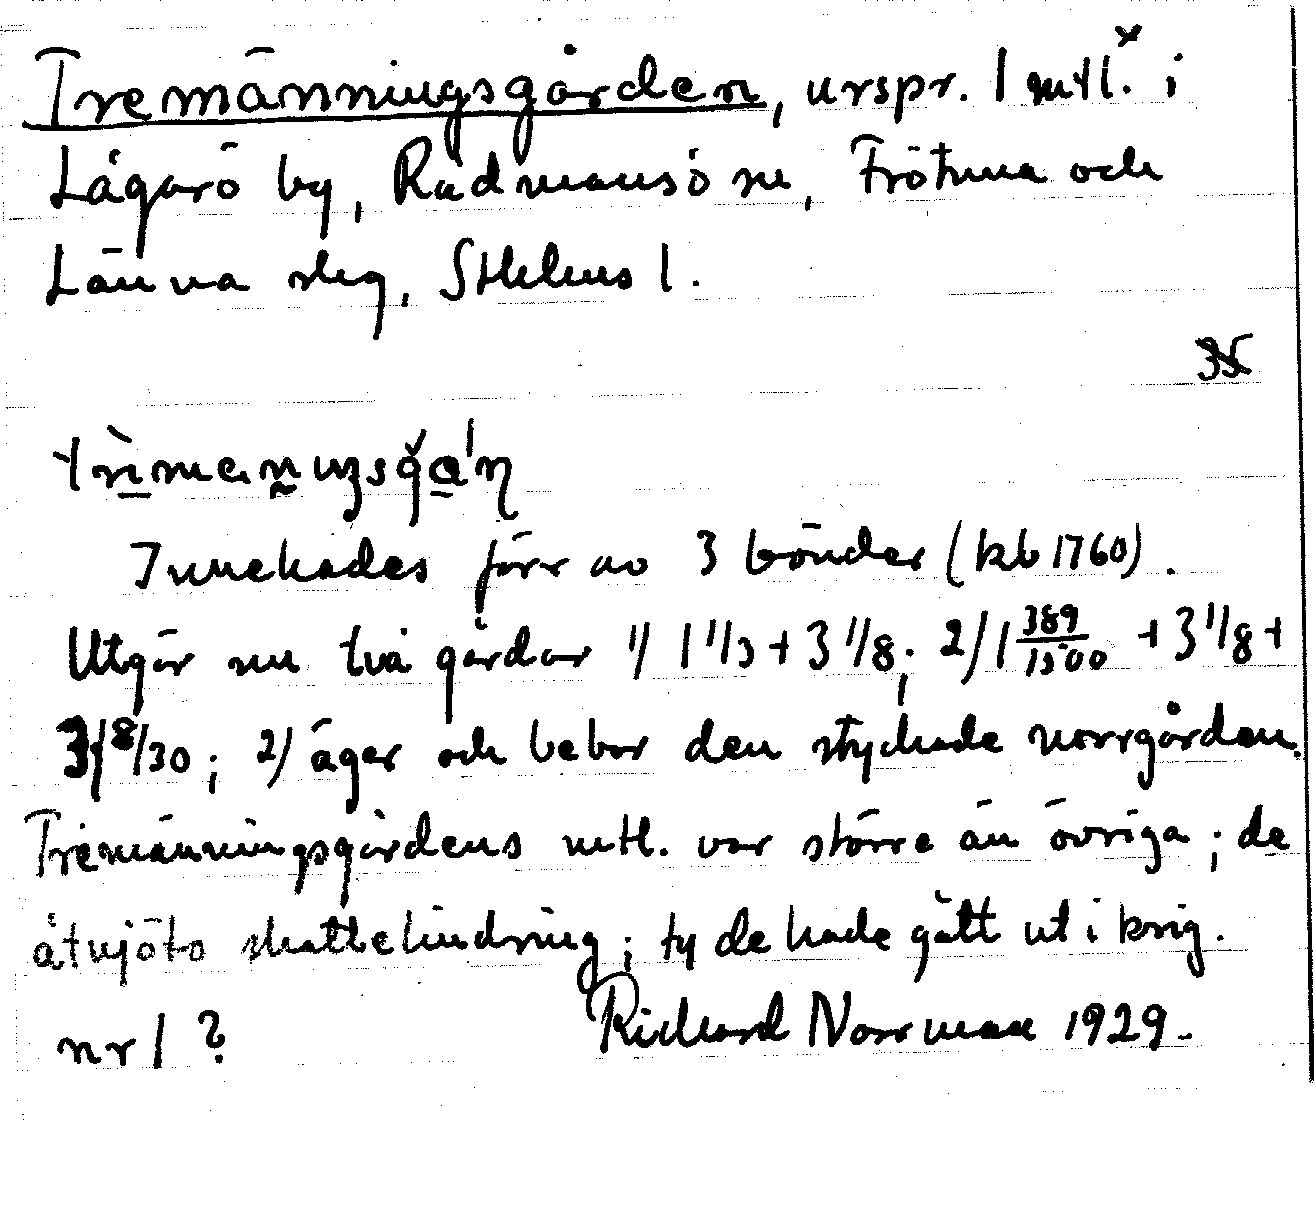 Tremänningsgården, urspr. 1 mtl.x i
Lågarö by, Rådmansö sn, Frötuna och
Länna slg, Sthlms l.
35
Innehades förr av 3 bönder (kb 1760).
Utgör nu två gårdar 1/ 1 1/3 + 3 1/8; 2/ 1 389/1500 + 3 1/8 +
8/30; 2/ äger och bebor den styckade norrgården.
Tremänningsgårdens mtl. var större än övriga; de
åtnjöto skattelindring; ty de hade gått ut i krig.
nr 1 ? Richard Norrman 1929.